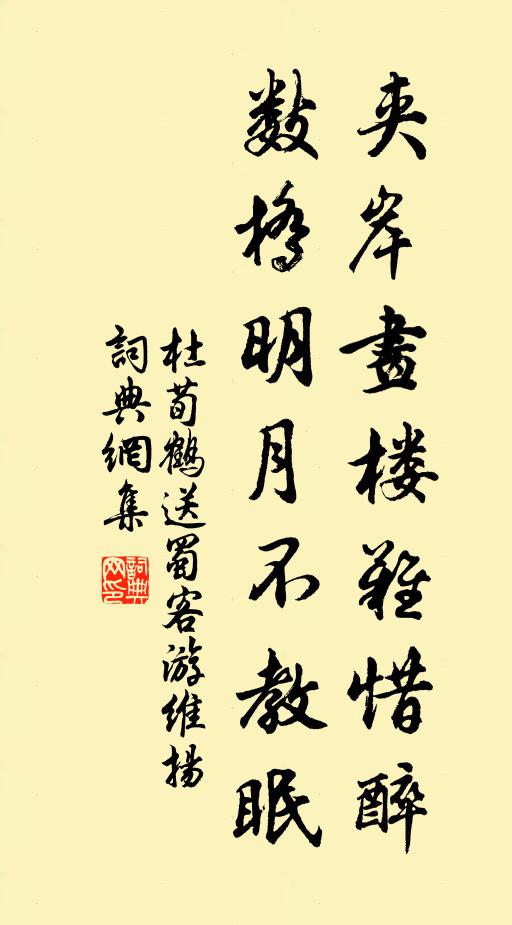 夹岸畫楼難惜醉
数橋明月不教眠
杜荀鶴送蜀客游維揚
詞典網集
詞典
网印